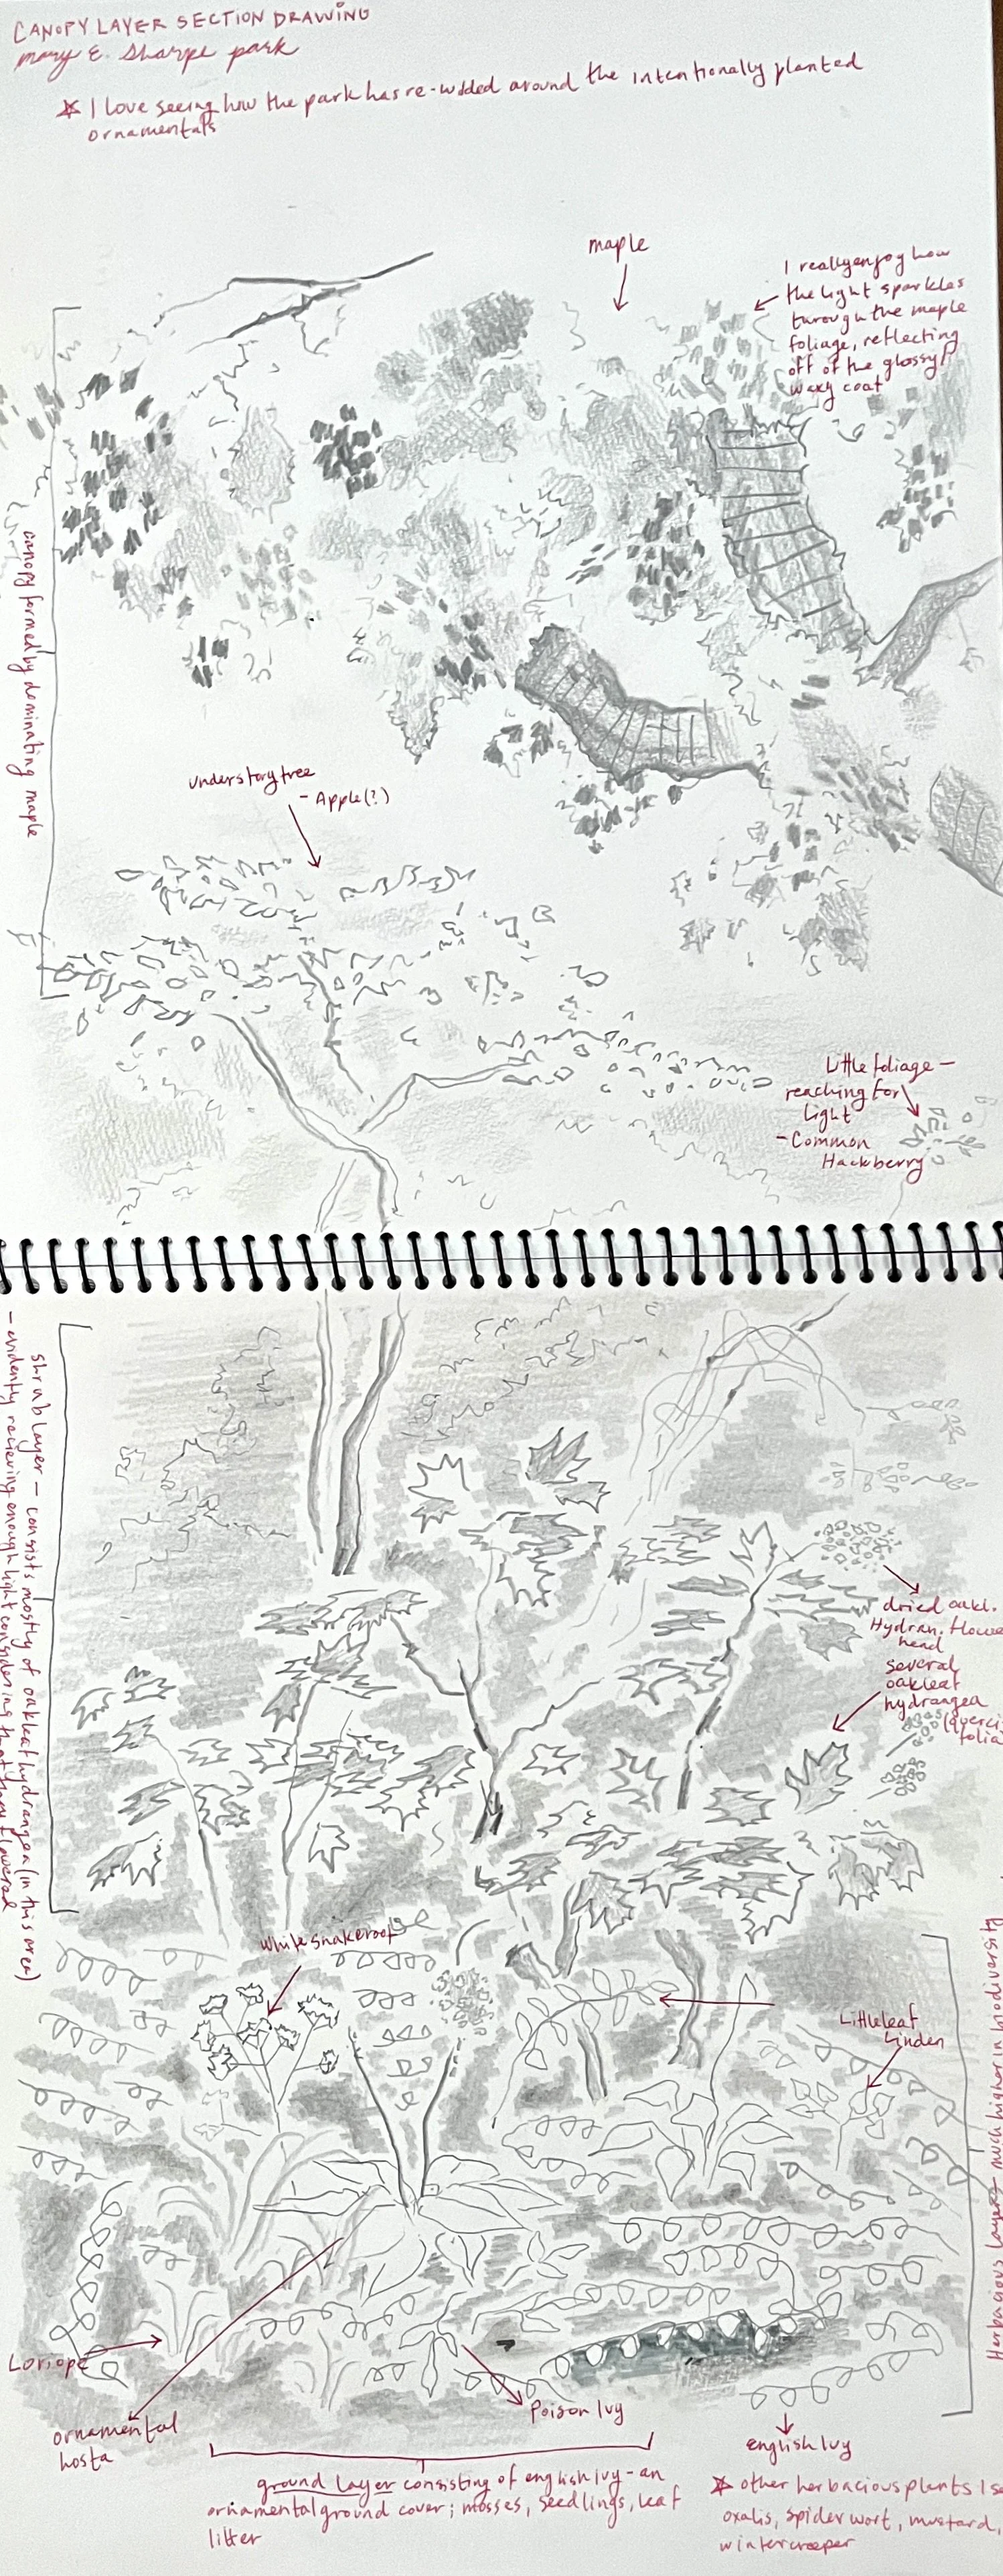 CANOPY LAYER SECTION DRAWING
mary E. Sharpe park
* I love seeing how the park has re-wilded around the intentionally planted
ornamentals
maple
I really enjoy how
the light sparkles
through the maple
foliage, reflecting
off of the glossy/
waxy coat
canopy formed by dominating maple
understory tree
- Apple(?)
Little foliage -
reaching for
light
- Common
Hackberry
shrub layer - consists mostly of oakleaf hydrangea (in this area)
- evidently recieving enough light considering that they flowered
dried oakl.
Hydran. flowe
head
several
oakleaf
hydrangea
(querci
folia
White snakeroot
Littleleaf
Linden
Herbacious layer - much higher in biodiversity
Loriope
ornamental
hosta
Poison Ivy
english Ivy
ground layer consisting of english ivy - an
ornamental ground cover; mosses, seedlings, leaf
litter
* other herbacious plants I se
oxalis, spider wort, mustard,
wintercreeper